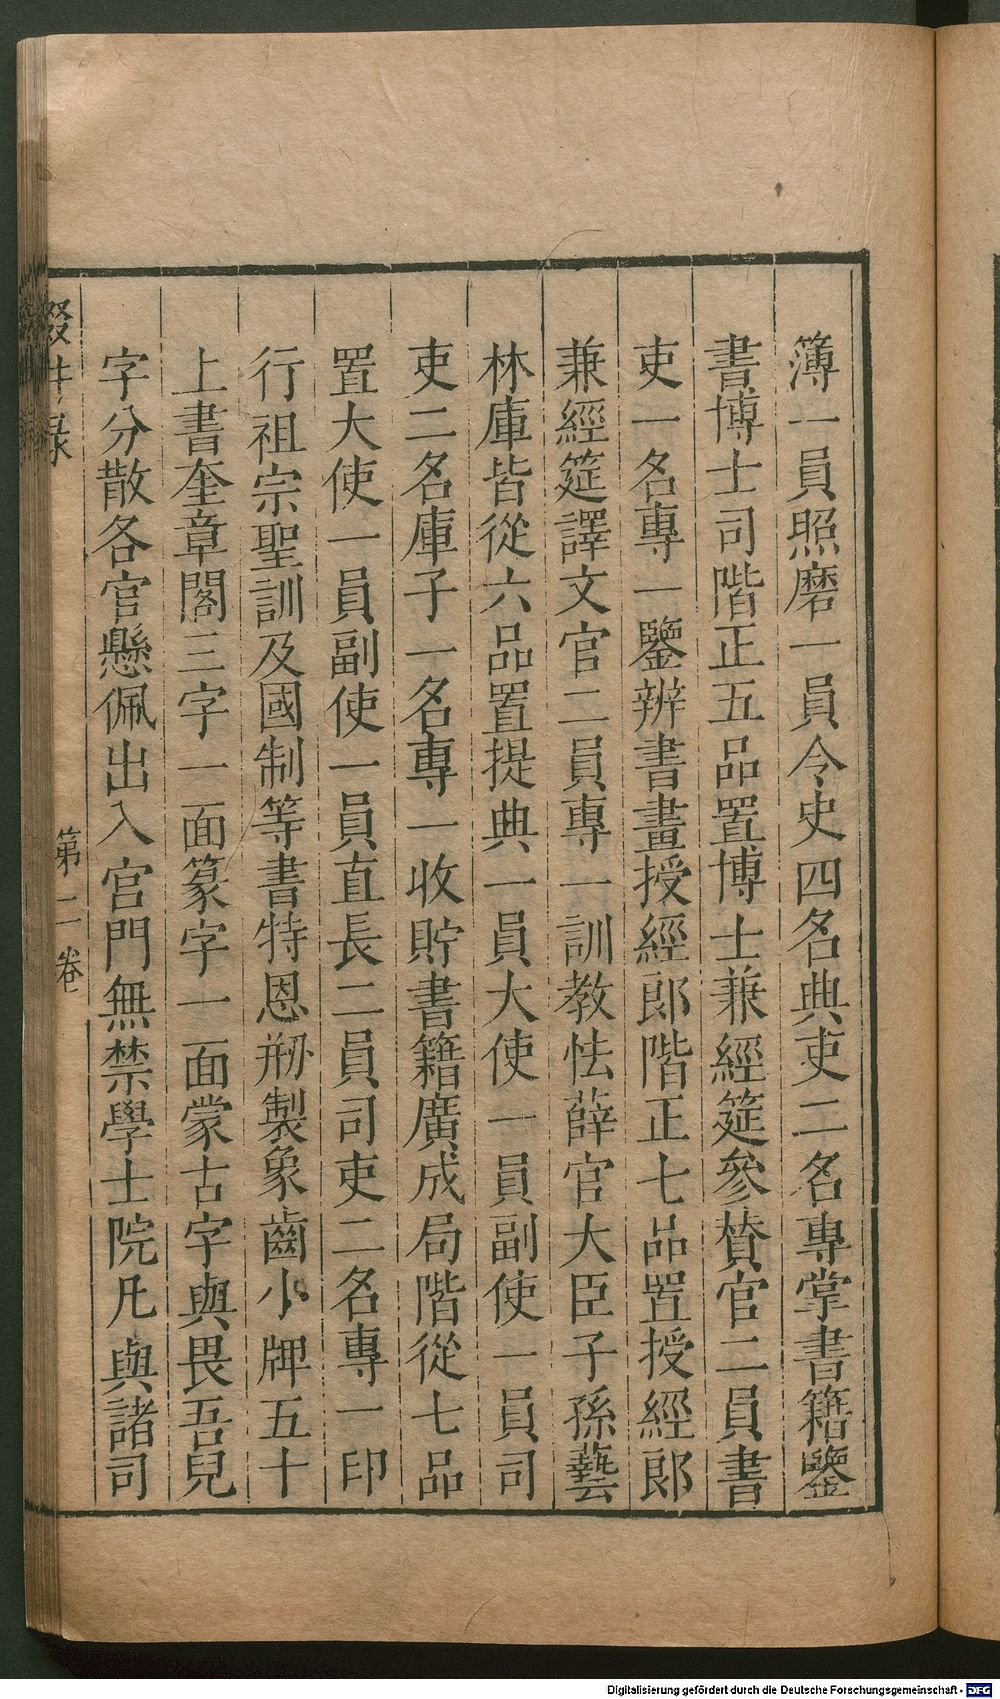 簿一員照磨一員令史四名典吏二名專掌書籍鑒
書博士司階正五品置博士兼經筵參賛官二員書
吏一名專一鑒辨書畫授經郎階正七品置授經郎
兼經筵譯文官二員專一訓教怯薛官大臣子孫藝
林庫皆從六品置提典一員大使一員副使一員司
吏二名庫子一名專一收貯書籍廣成局階從七品
置大使一員副使一員直長二員司吏二名專一印
行祖宗聖訓及國制等書特恩剙製象齒小牌五十
上書奎章閣三字一面篆字一面蒙古字與畏吾兒
字分散各官懸佩出入宮門無禁學士院凡與諸司
輟畊录
第二卷
Digitalisierung gefördert durch die Deutsche Forschungsgemeinschaft - DFG